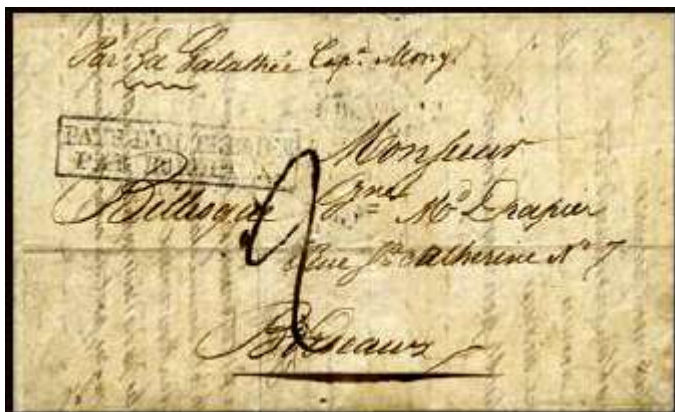 Par La Galathée Cap.ⁿ Mong.
PAYS D'OUTREMER
PAR
Monsieur
Bellocque J.ne M.d Drapier
Rue S.te Catherine N.o 7
2
Bordeaux